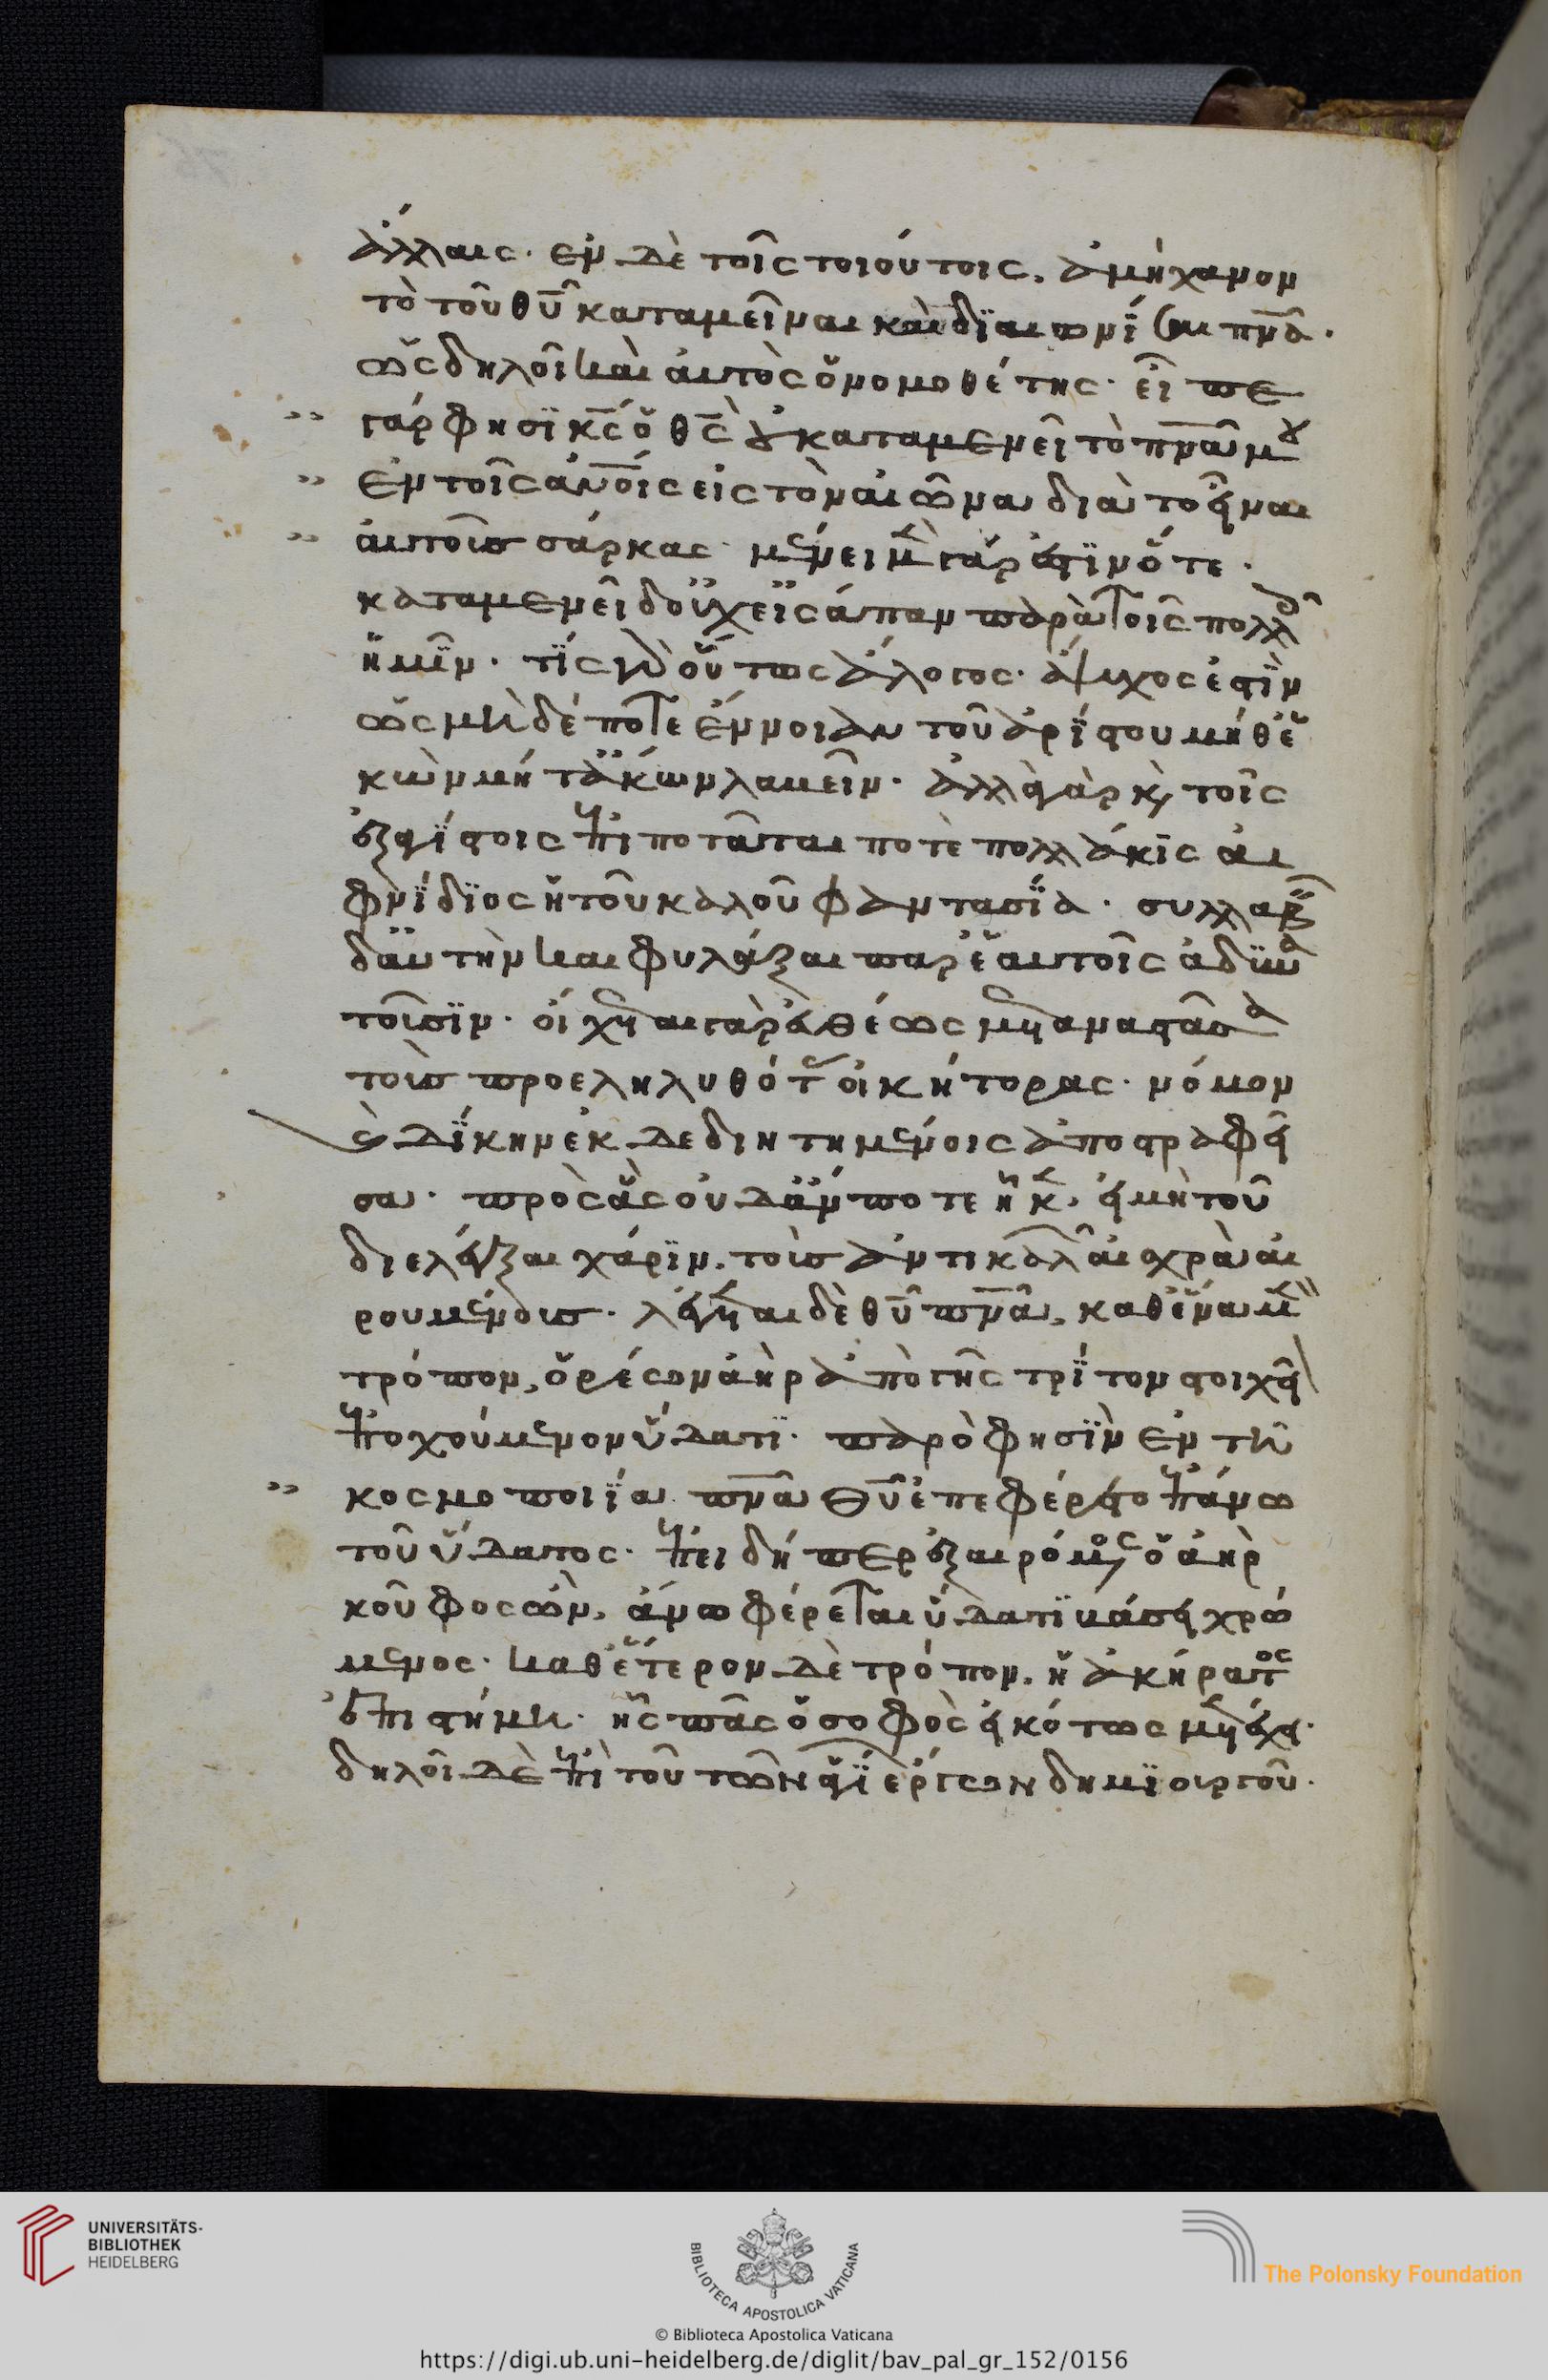 ἄλλαις· ἐν δὲ τοῖς τοιούτοις, ἀμήχανον
τὸ τοῦ θυ̅ καταμεῖναι καὶ διαιωνίσαι πνα̅·
ὡς δηλοῖ καὶ αὐτὸς ὁ νομοθέτης· εἶπε
γάρ φησϊ κς̅ ὁ θς̅ οὐ καταμενεῖ τὸ πνα̅ μου
ἐν τοῖς ἀνοις̅ εἰς τὸν αἰῶνα διὰ τὸ εἶναι
αὐτοὺς σάρκας· μένει μὲν γὰρ ἔστϊν ὅτε·
καταμενεῖ δ οὐχ εἰς ἅπαν παρὰ τοῖς πολλοῖς
ἡμῖν· τίς γὰρ οὕτως ἄλογος· ἄψυχος ἐστϊν
ὡς μηδέποτε ἔννοιαν τοῦ ἀρίστου μήθ ἑ
κὼν μήτ ἄκων λαβεῖν· ἀλλὰ γὰρ καὶ τοῖς
ἐξαγίστοις ἐπιποτᾶται ποτὲ πολλάκις αἰ
φνίδϊος ἡ τοῦ καλοῦ φαντασία· συλλαβεῖν
δ αὐτὴν καὶ φυλάξαι παρ ἑαυτοῖς ἀδυνα
τοῦσϊν· οἴχεται γὰρ εὐθέως μεταναστᾶσα
τοὺς προεληλυθότας οἰκήτορας· νόμον
καὶ δίκην ἐκδεδιητημένοις ἀποστραφεῖ
σα· πρὸς ἃς οὐδ ἄν ποτε ἧκεν, εἰ μὴ τοῦ
διελέγξαι χάρϊν, τοὺς ἀντι καλῶν αἰσχρὰ αἱ
ρουμένους· λέγεται δὲ θυ̅ πνα̅, καθ ἕνα μὲν
τρόπον, ὁ ῥέων ἀὴρ ἀπὸ γῆς τρίτον στοιχεῖον
ἐποχούμενον ὕδατϊ· παρὸ φησϊν ἐν τῆ
κοσμοποιία πνα̅ θυ̅ ἐπεφέρετο ἐπάνω
τοῦ ὕδατος· ἐπειδήπερ ἐξαιρόμενος ὁ ἀὴρ
κοῦφος ὢν, ἄνω φέρεται ὕδατϊ βάσει χρώ
μενος· καθ ἕτερον δὲ τρόπον, ἡ ἀκήρατος
ἐπιστήμη· ἧς πᾶς ὁ σοφὸς εἰκότως μετέχει·
δηλοῖ δὲ ἐπὶ τοῦ τῶν ἁγίων ἔργων δημϊουργοῦ·
UNIVERSITÄTS-
BIBLIOTHEK
HEIDELBERG
BIBLIOTECA APOSTOLICA VATICANA
The Polonsky Foundation
© Biblioteca Apostolica Vaticana
https://digi.ub.uni-heidelberg.de/diglit/bav_pal_gr_152/0156